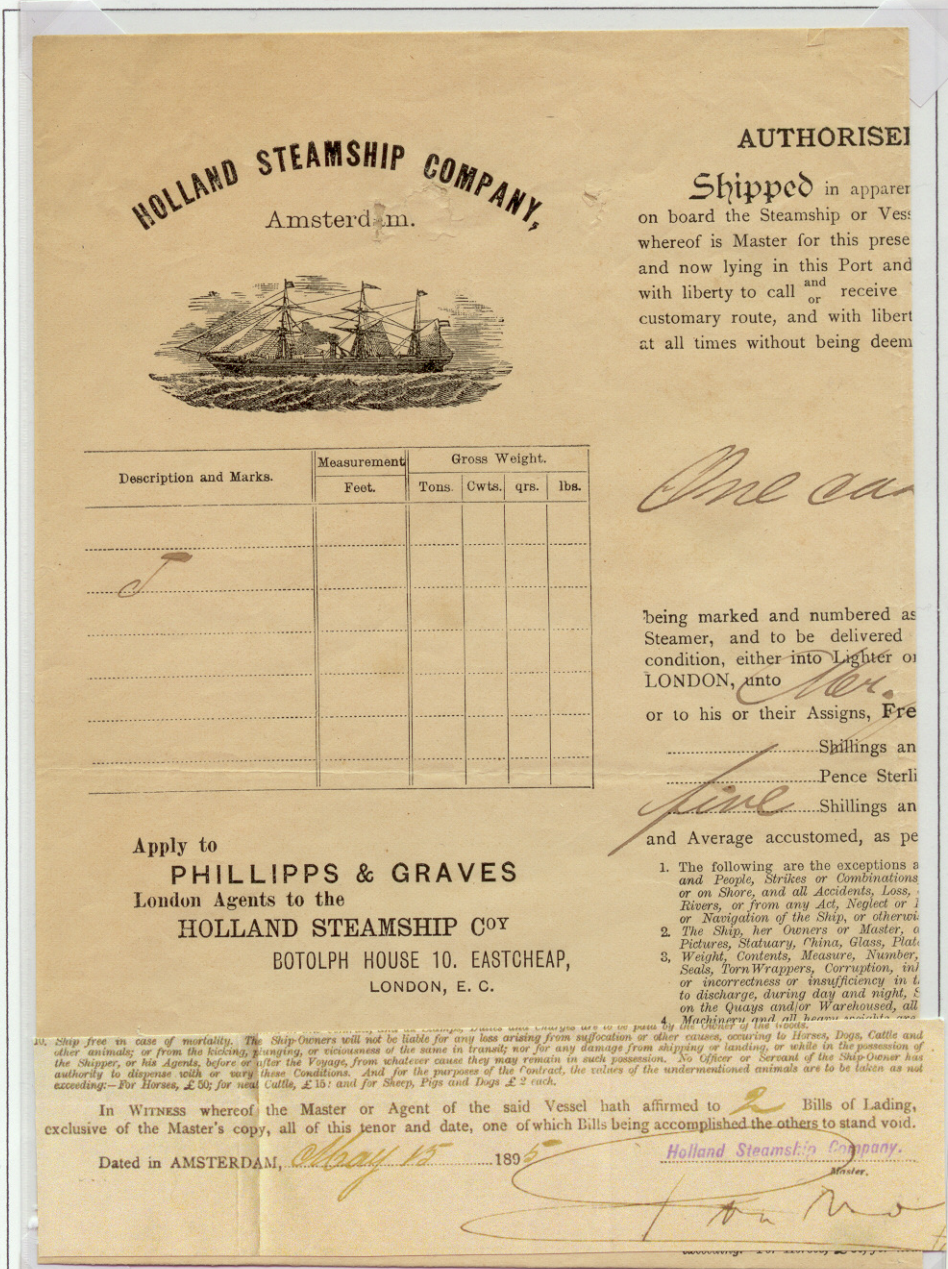 HOLLAND STEAMSHIP COMPANY,
Amsterdam.
Description and Marks.
Measurement
Feet.
Gross Weight.
Tons. Cwts. qrs. lbs.
J
Apply to
PHILLIPPS & GRAVES
London Agents to the
HOLLAND STEAMSHIP COY
BOTOLPH HOUSE 10. EASTCHEAP,
LONDON, E. C.
AUTHORISE
Shipped in appare
on board the Steamship or Ves
whereof is Master for this prese
and now lying in this Port and
with liberty to call and or receive
customary route, and with libert
at all times without being deem
One ca
being marked and numbered as
Steamer, and to be delivered
condition, either into Lighter or
LONDON, unto
or to his or their Assigns, Fre
Shillings an
Pence Sterli
five Shillings an
and Average accustomed, as pe
1. The following are the exceptions a
and People, Strikes or Combinations
or on Shore, and all Accidents, Loss,
Rivers, or from any Act, Neglect or
or Navigation of the Ship, or otherwi
2. The Ship, her Owners or Master,
Pictures, Statuary, China, Glass, Plat
3, Weight, Contents, Measure, Number,
Seals, Torn Wrappers, Corruption,
or incorrectness or insufficiency in
to discharge, during day and night,
on the Quays and/or Warehoused, all
4. Machinery and all heavy weights are
are to be paid by the Owner of the Goods.
Ship free in case of mortality. The Ship-Owners will not be liable for any loss arising from suffocation or other causes, occuring to Horses, Dogs, Cattle and
other animals; or from the kicking, plunging, or viciousness of the same in transit; nor for any damage from shipping or landing, or while in the possession of
the Shipper, or his Agents, before or after the Voyage, from whatever cause they may remain in such possession. No Officer or Servant of the Ship-Owner has
authority to dispense with or vary these Conditions. And for the purposes of the Contract, the values of the undermentioned animals are to be taken as not
exceeding:—For Horses, £ 50; for neat Cattle, £ 15: and for Sheep, Pigs and Dogs £ 2 each.
In WITNESS whereof the Master or Agent of the said Vessel hath affirmed to 2 Bills of Lading,
exclusive of the Master's copy, all of this tenor and date, one of which Bills being accomplished the others to stand void.
Dated in AMSTERDAM, May 15 1895
Holland Steamship Company.
Master.